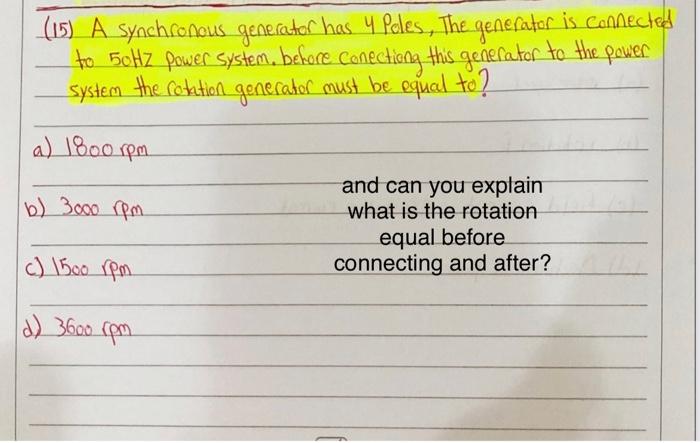 (15) A synchronous generator has 4 Poles, The generator is connected
to 50HZ power system. before conectiong this generator to the power
system the rotation generator must be equal to?
a) 1800 rpm
b) 3000 rpm
c) 1500 rpm
d) 3600 rpm
and can you explain
what is the rotation
equal before
connecting and after?